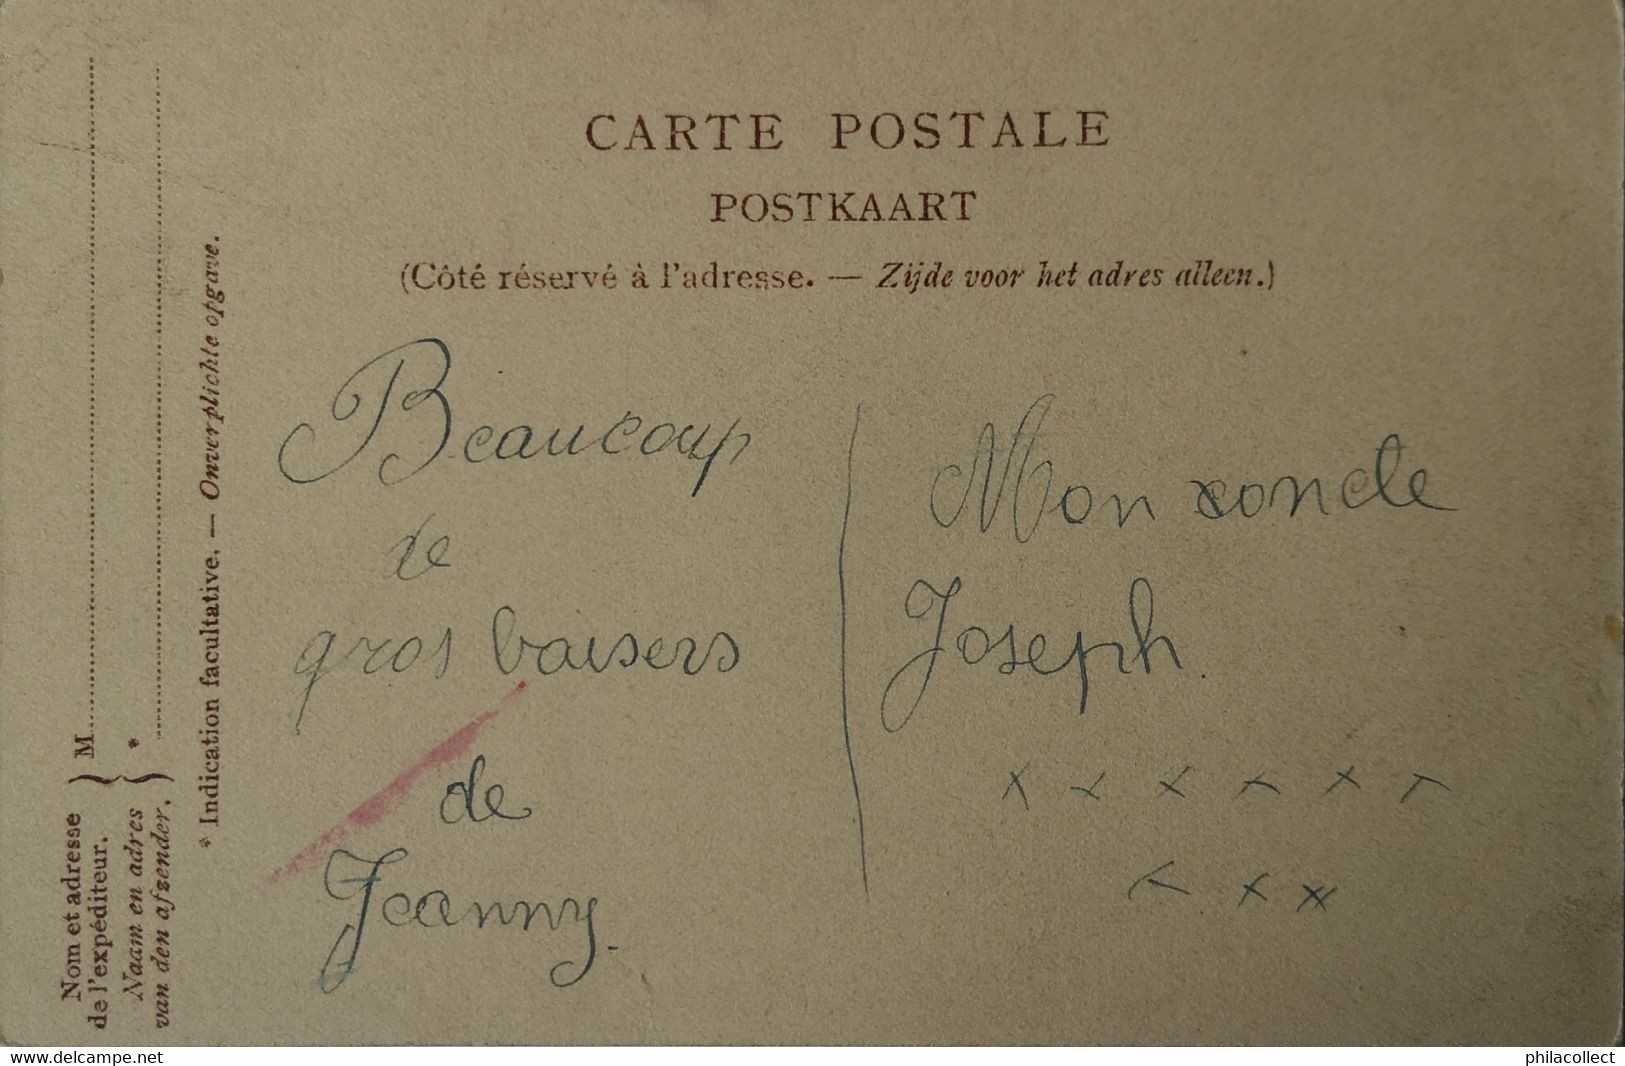 CARTE POSTALE
POSTKAART
(Côté réservé à l'adresse. — Zijde voor het adres alleen.)
Nom et adresse
de l'expéditeur.
Naam en adres
van den afzender.
M
*
* Indication facultative. — Onverplichte opgave.
Beaucoup
de
gros baisers
de
Jeanny.
Mon
Joseph.
x x x x x x
x x x
delcampe.net
philacollect